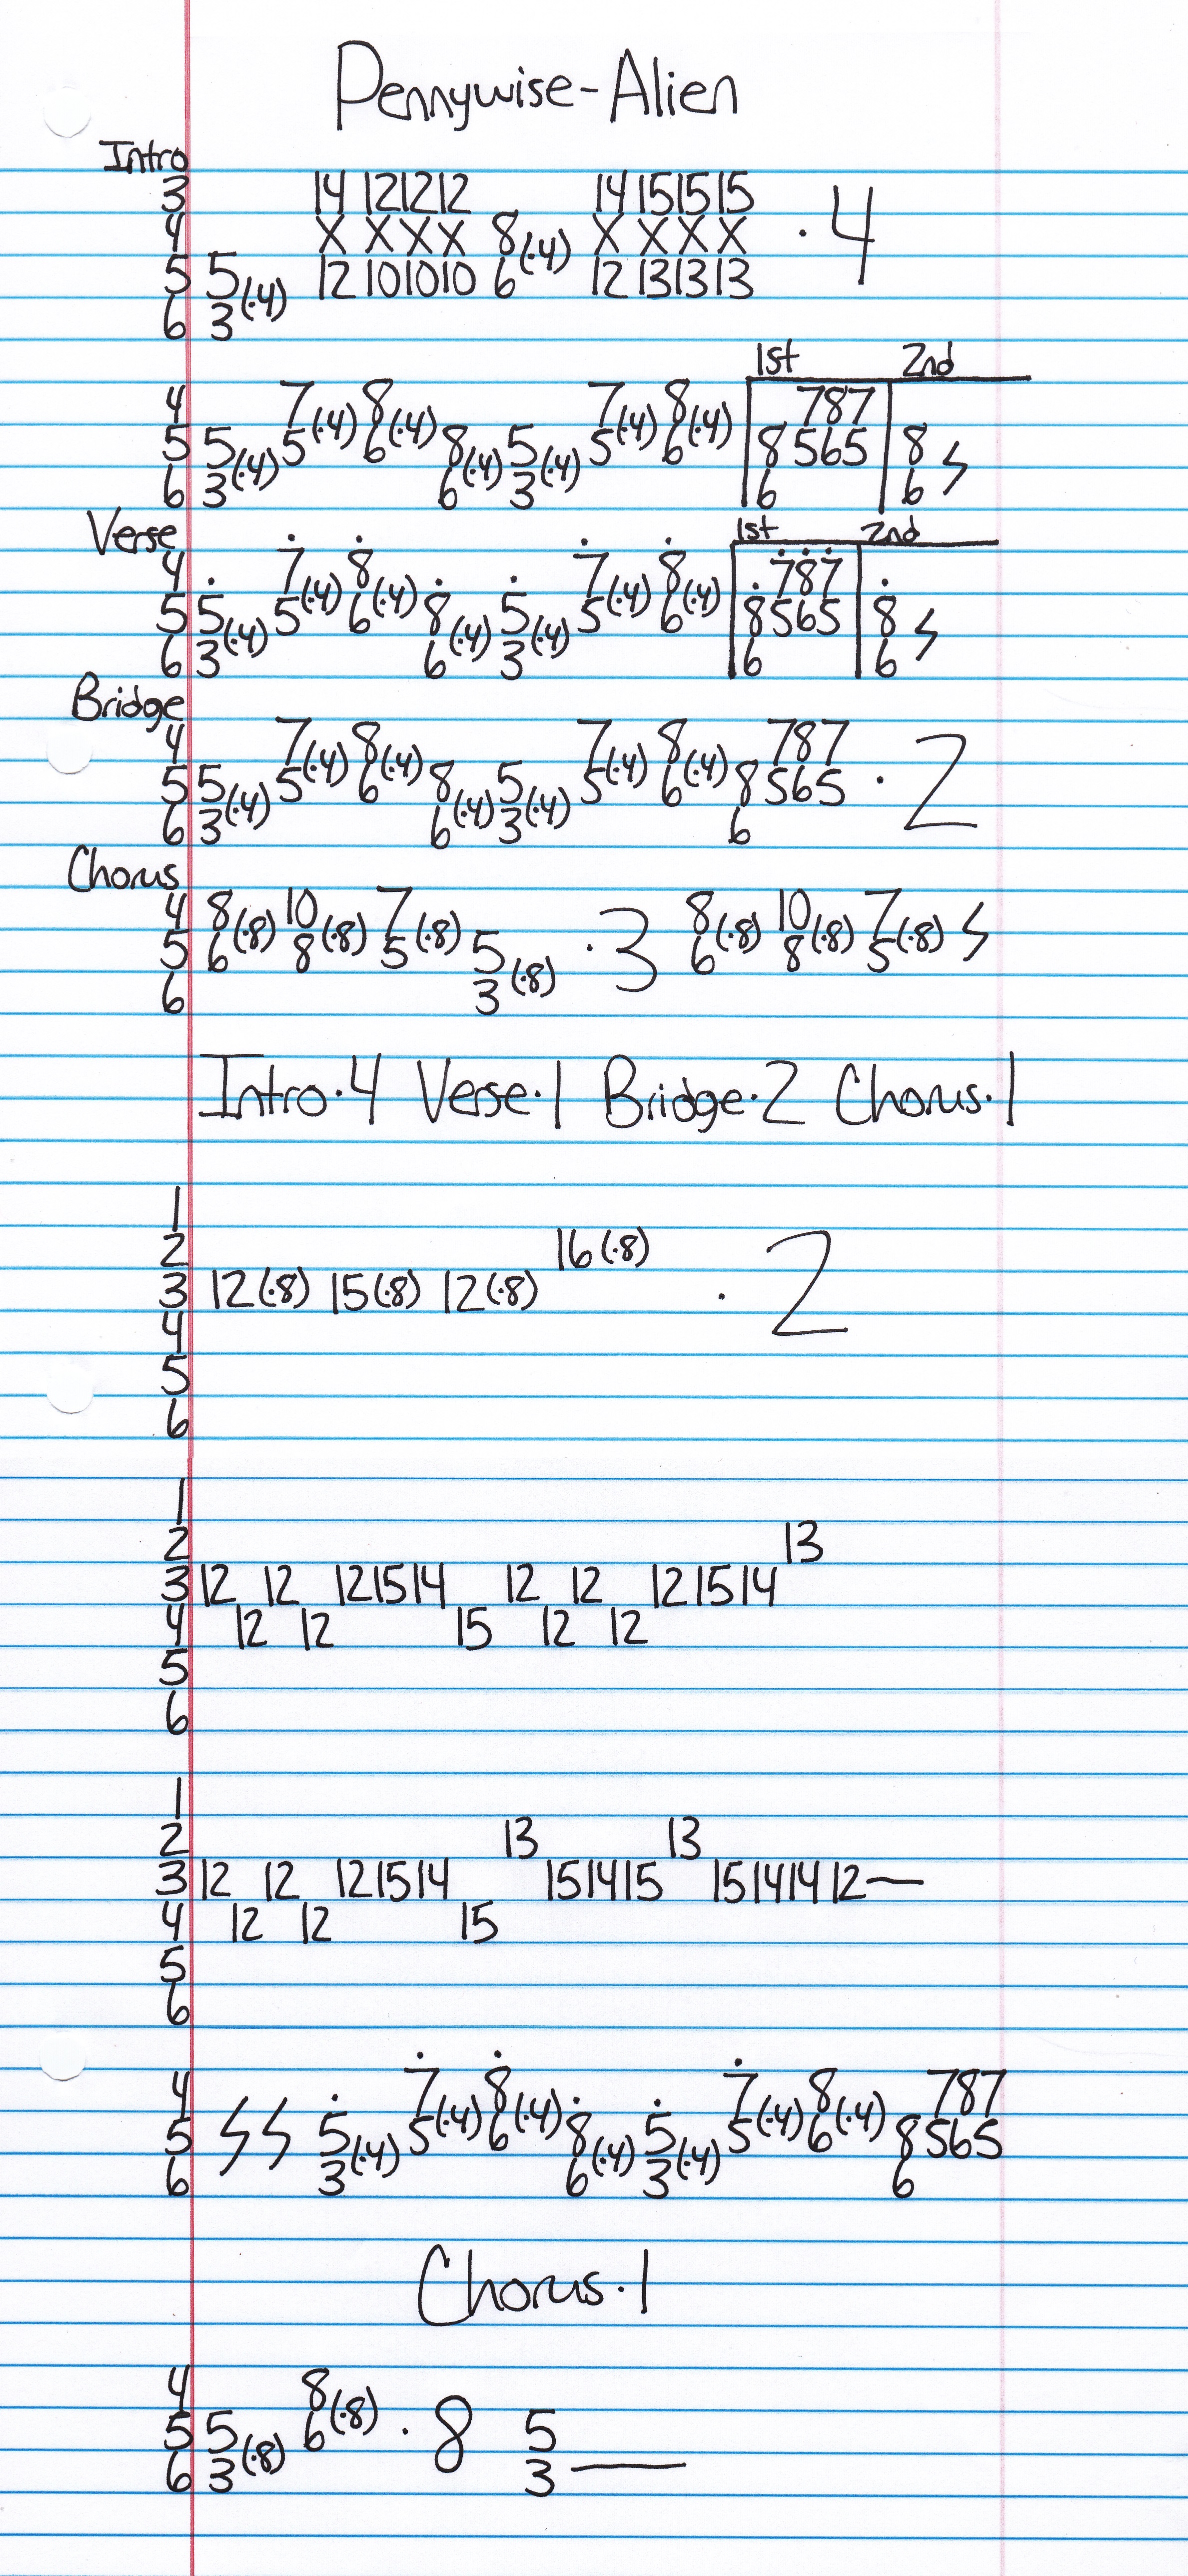 Pennywise-Alien
Intro
3 14 12 12 12 14 15 15 15
4 X X X X 8 (·4) X X X X · 4
5 5 (·4) 12 10 10 10 6 12 13 13 13
6 3
1st 2nd
4 7 (·4) 8 (·4) 7 (·4) 8 (·4) 7 8 7
5 5 (·4) 5 6 8 (·4) 5 (·4) 5 6 8 5 6 5 8
6 3 6 3 6 6
Verse 1st 2nd
4 7 (·4) 8 (·4) 7 (·4) 8 (·4) 7 8 7
5 5 (·4) 5 6 8 (·4) 5 (·4) 5 6 8 5 6 5 8
6 3 6 3 6 6
Bridge
4 7 (·4) 8 (·4) 7 (·4) 8 (·4) 7 8 7
5 5 (·4) 5 6 8 (·4) 5 (·4) 5 6 8 5 6 5 · 2
6 3 6 3 6
Chorus
4 8 (·8) 10 (·8) 7 (·8) 8 (·8) 10 (·8) 7 (·8)
5 6 8 5 5 (·8) · 3 6 8 5
6 3
Intro·4 Verse·1 Bridge·2 Chorus·1
1
2 16(·8)
3 12(·8) 15(·8) 12(·8) · 2
4
5
6
1
2 13
3 12 12 12 15 14 12 12 12 15 14
4 12 12 15 12 12
5
6
1
2 13 13
3 12 12 12 15 14 15 14 15 15 14 14 12—
4 12 12 15
5
6
4 7 (·4) 8 (·4) 7 (·4) 8 (·4) 7 8 7
5 5 (·4) 5 6 8 (·4) 5 (·4) 5 6 8 5 6 5
6 3 6 3 6
Chorus·1
4 8 (·8)
5 5 (·8) 6 · 8 5
6 3 3 —